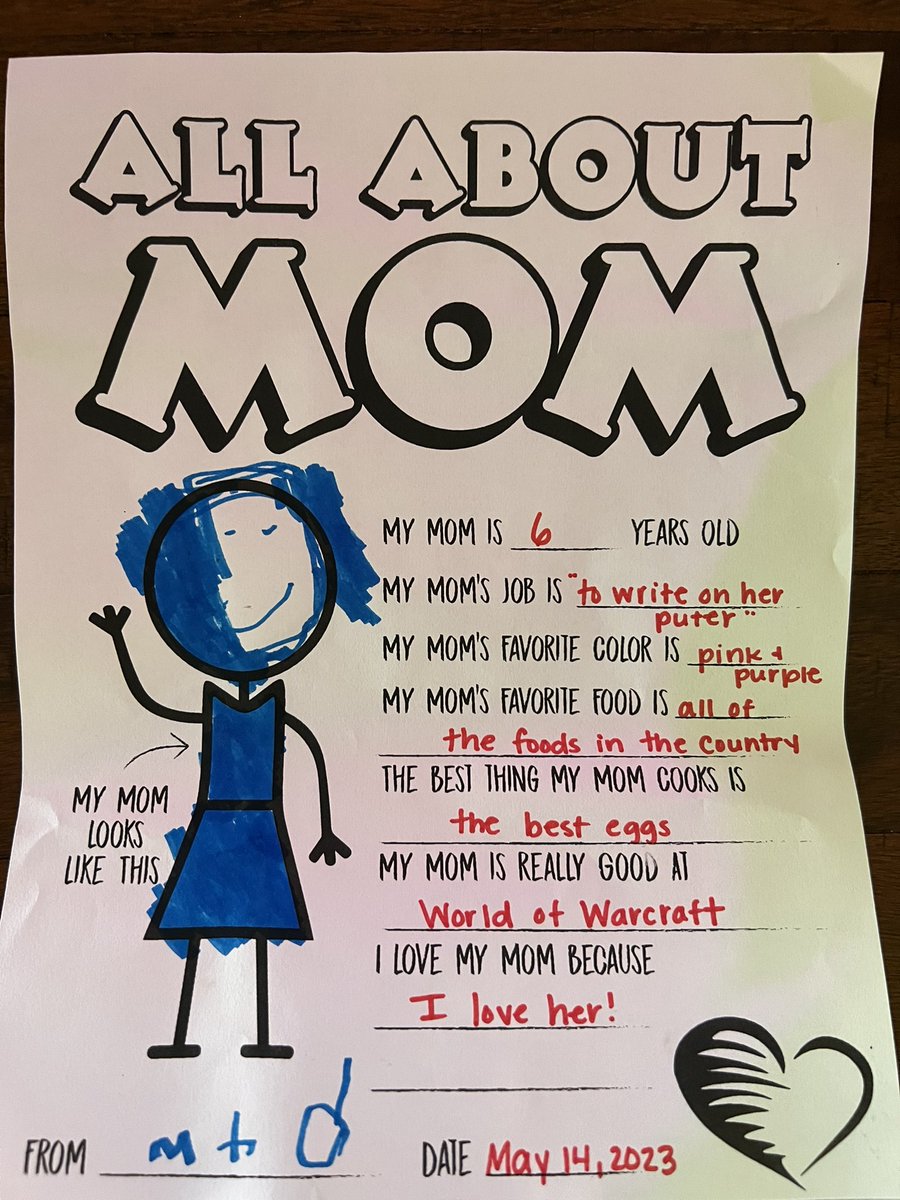 ALL ABOUT
MOM
MY MOM IS 6 YEARS OLD
MY MOM'S JOB IS "to write on her
puter"
MY MOM'S FAVORITE COLOR IS pink +
purple
MY MOM'S FAVORITE FOOD IS all of
the foods in the country
THE BEST THING MY MOM COOKS IS
the best eggs
MY MOM IS REALLY GOOD AT
World of Warcraft
I LOVE MY MOM BECAUSE
I love her!
MY MOM
LOOKS
LIKE THIS
FROM
DATE May 14, 2023